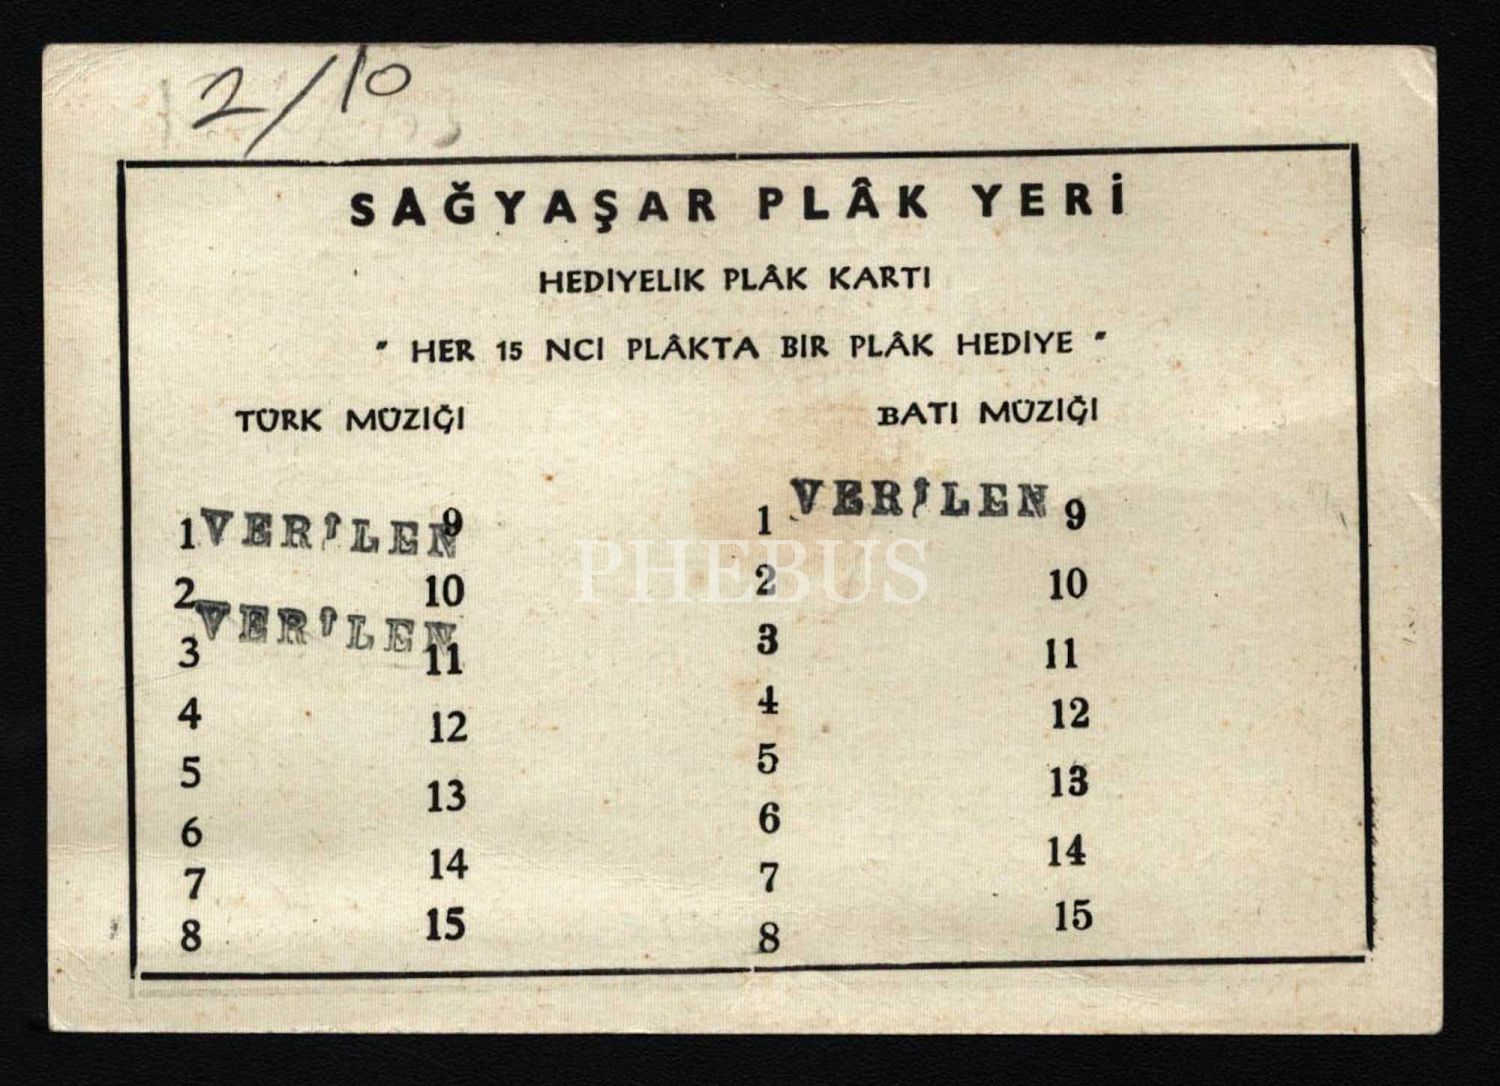 2/10
SAĞYAŞAR PLÂK YERİ
HEDİYELİK PLÂK KARTI
" HER 15 NCİ PLÂKTA BİR PLÂK HEDİYE "
TÜRK MÜZİĞİ BATI MÜZİĞİ
1 VERİLEN 9 1 VERİLEN 9
2 10 2 10
VERİLEN
3 11 3 11
4 12 4 12
5 13 5 13
6 14 6 14
7 15 7 15
8 8
PHEBUS